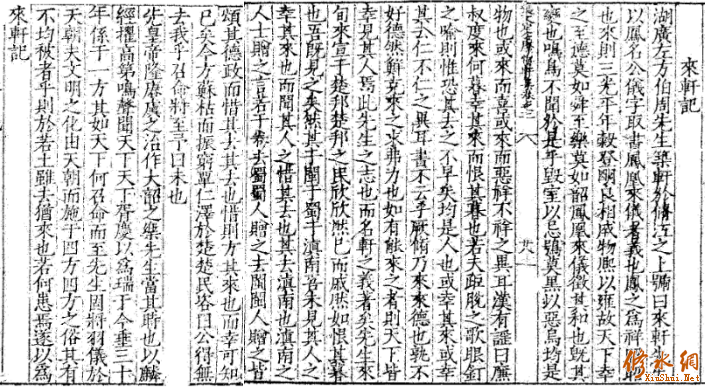 來軒記
湖廣左方伯周先生築軒於脩江之上號曰來軒
以鳳名公儀字取書鳳凰來儀者義也鳳之為祥物
也來則三光平年穀登爾良相咸物熙以雍故天下幸
之至德莫如舜至樂莫如韶鳳凰來儀徵其和也既其
衰也鳴焉不聞於是乎毀室以忌鴞莫黑以惡烏均是
物也或來而喜或來而惡祥不祥之異耳漢有謠曰廉
叔度來何暮幸其來而恨其暮也若夫距脫之歌眼釘
之喻則惟恐其去之不早矣均是人也或幸其來或幸
其去仁不仁之異耳書不云乎厥乃來來德也孰不
好德然鮮克來之來弗力也如有能來之者則天下皆
幸見其人焉此先生之志也而名軒之義者矣先生來
旬來宣于楚邦楚邦之民欣欣然已而戚然如恨其暮
也吾既見之矣然其于閩于蜀于滇南吾未見其人之
幸其來也而聞其人之惜其去也其去滇南也滇南之
人士贈之言若干卷去蜀蜀人贈之去閩閩人贈之皆
頌其德政而惜其去其去也惜則方其來也而幸可知
已矣今方蘇枯而振窮單仁澤於楚楚民咨曰公得無
去我乎召命將至乎曰未也
先皇帝隆唐虞之治作大韶之樂先生當其時也以麟
經擢高第鳴聲聞天下天下胥慶以為瑞于今垂三十
年係于一方其如天下何召命而至先生固將羽儀於
天朝夫文明之化由天朝而施于四方四方之俗其有
不均被者乎則於若土雖去猶來也若何患焉遂以為
來軒記
修水網
XiuShui.Net